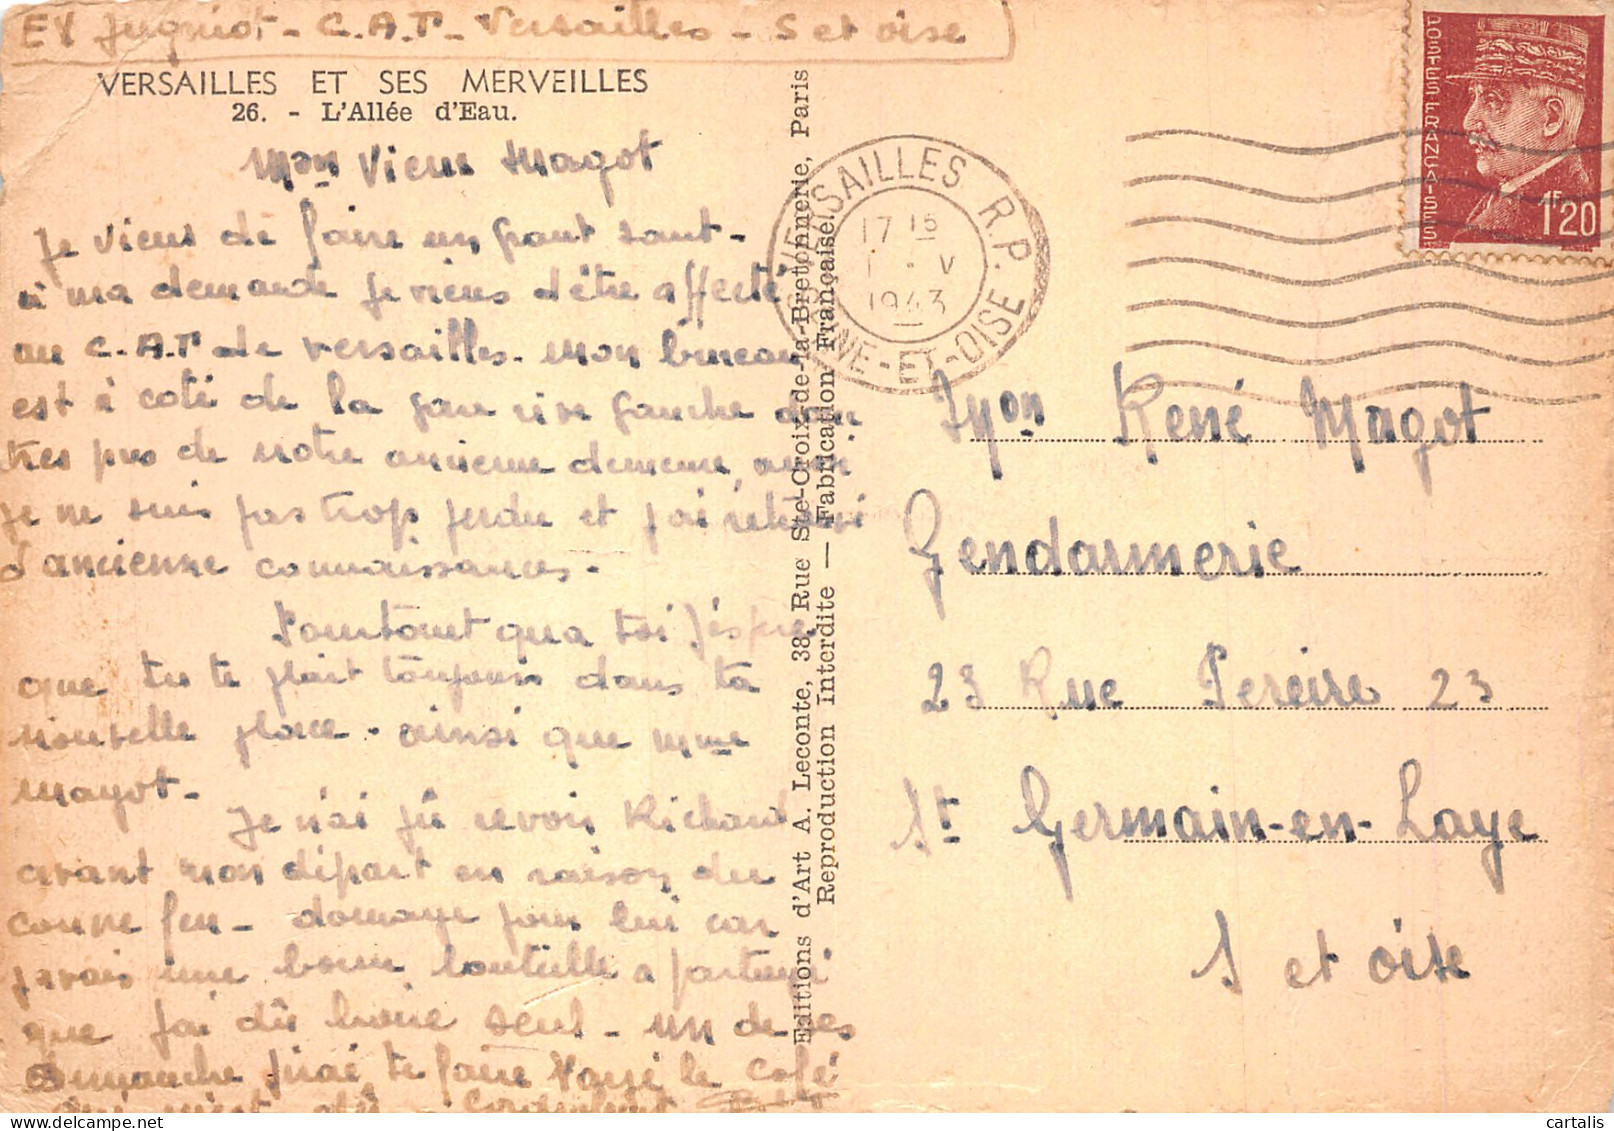 EX Juqniot - C.A.T - Versailles - S et oise
VERSAILLES ET SES MERVEILLES
26. - L'Allée d'Eau.
Mon Vieux Magot
Je viens de faire un saut
à ma demande je viens d'être affecté
au C.A.T de Versailles. Mon bureau
est à coté de la gare rive gauche donc
tres pres de notre ancienne demeure, aussi
je ne suis pas trop perdu et j'ai retrouvé
d'ancienne connaissances.
qua toi j'éspere
que tu te plait toujours dans ta
nouvelle place. ainsi que Mme
Magot.
Je n'ai pû revoir Richard
avant mon départ en raison du
couvre feu - domage pour lui car
j'avais une bonne bouteille
que j'ai dû boire seul - un de ses
dimanche j'irai te faire le café
Editions d'Art A. Leconte, 38, Rue Ste-Croix-de-la-Bretonnerie, Paris
Reproduction Interdite — Fabrication Française
VERSAILLES R.P.
17 15
1 · V
1943
SEINE-ET-OISE
POSTES FRANÇAISES
1F20
René Magot
Gendarmerie
23 Rue Pereire 23
St Germain-en-Laye
S et oise
cartalis